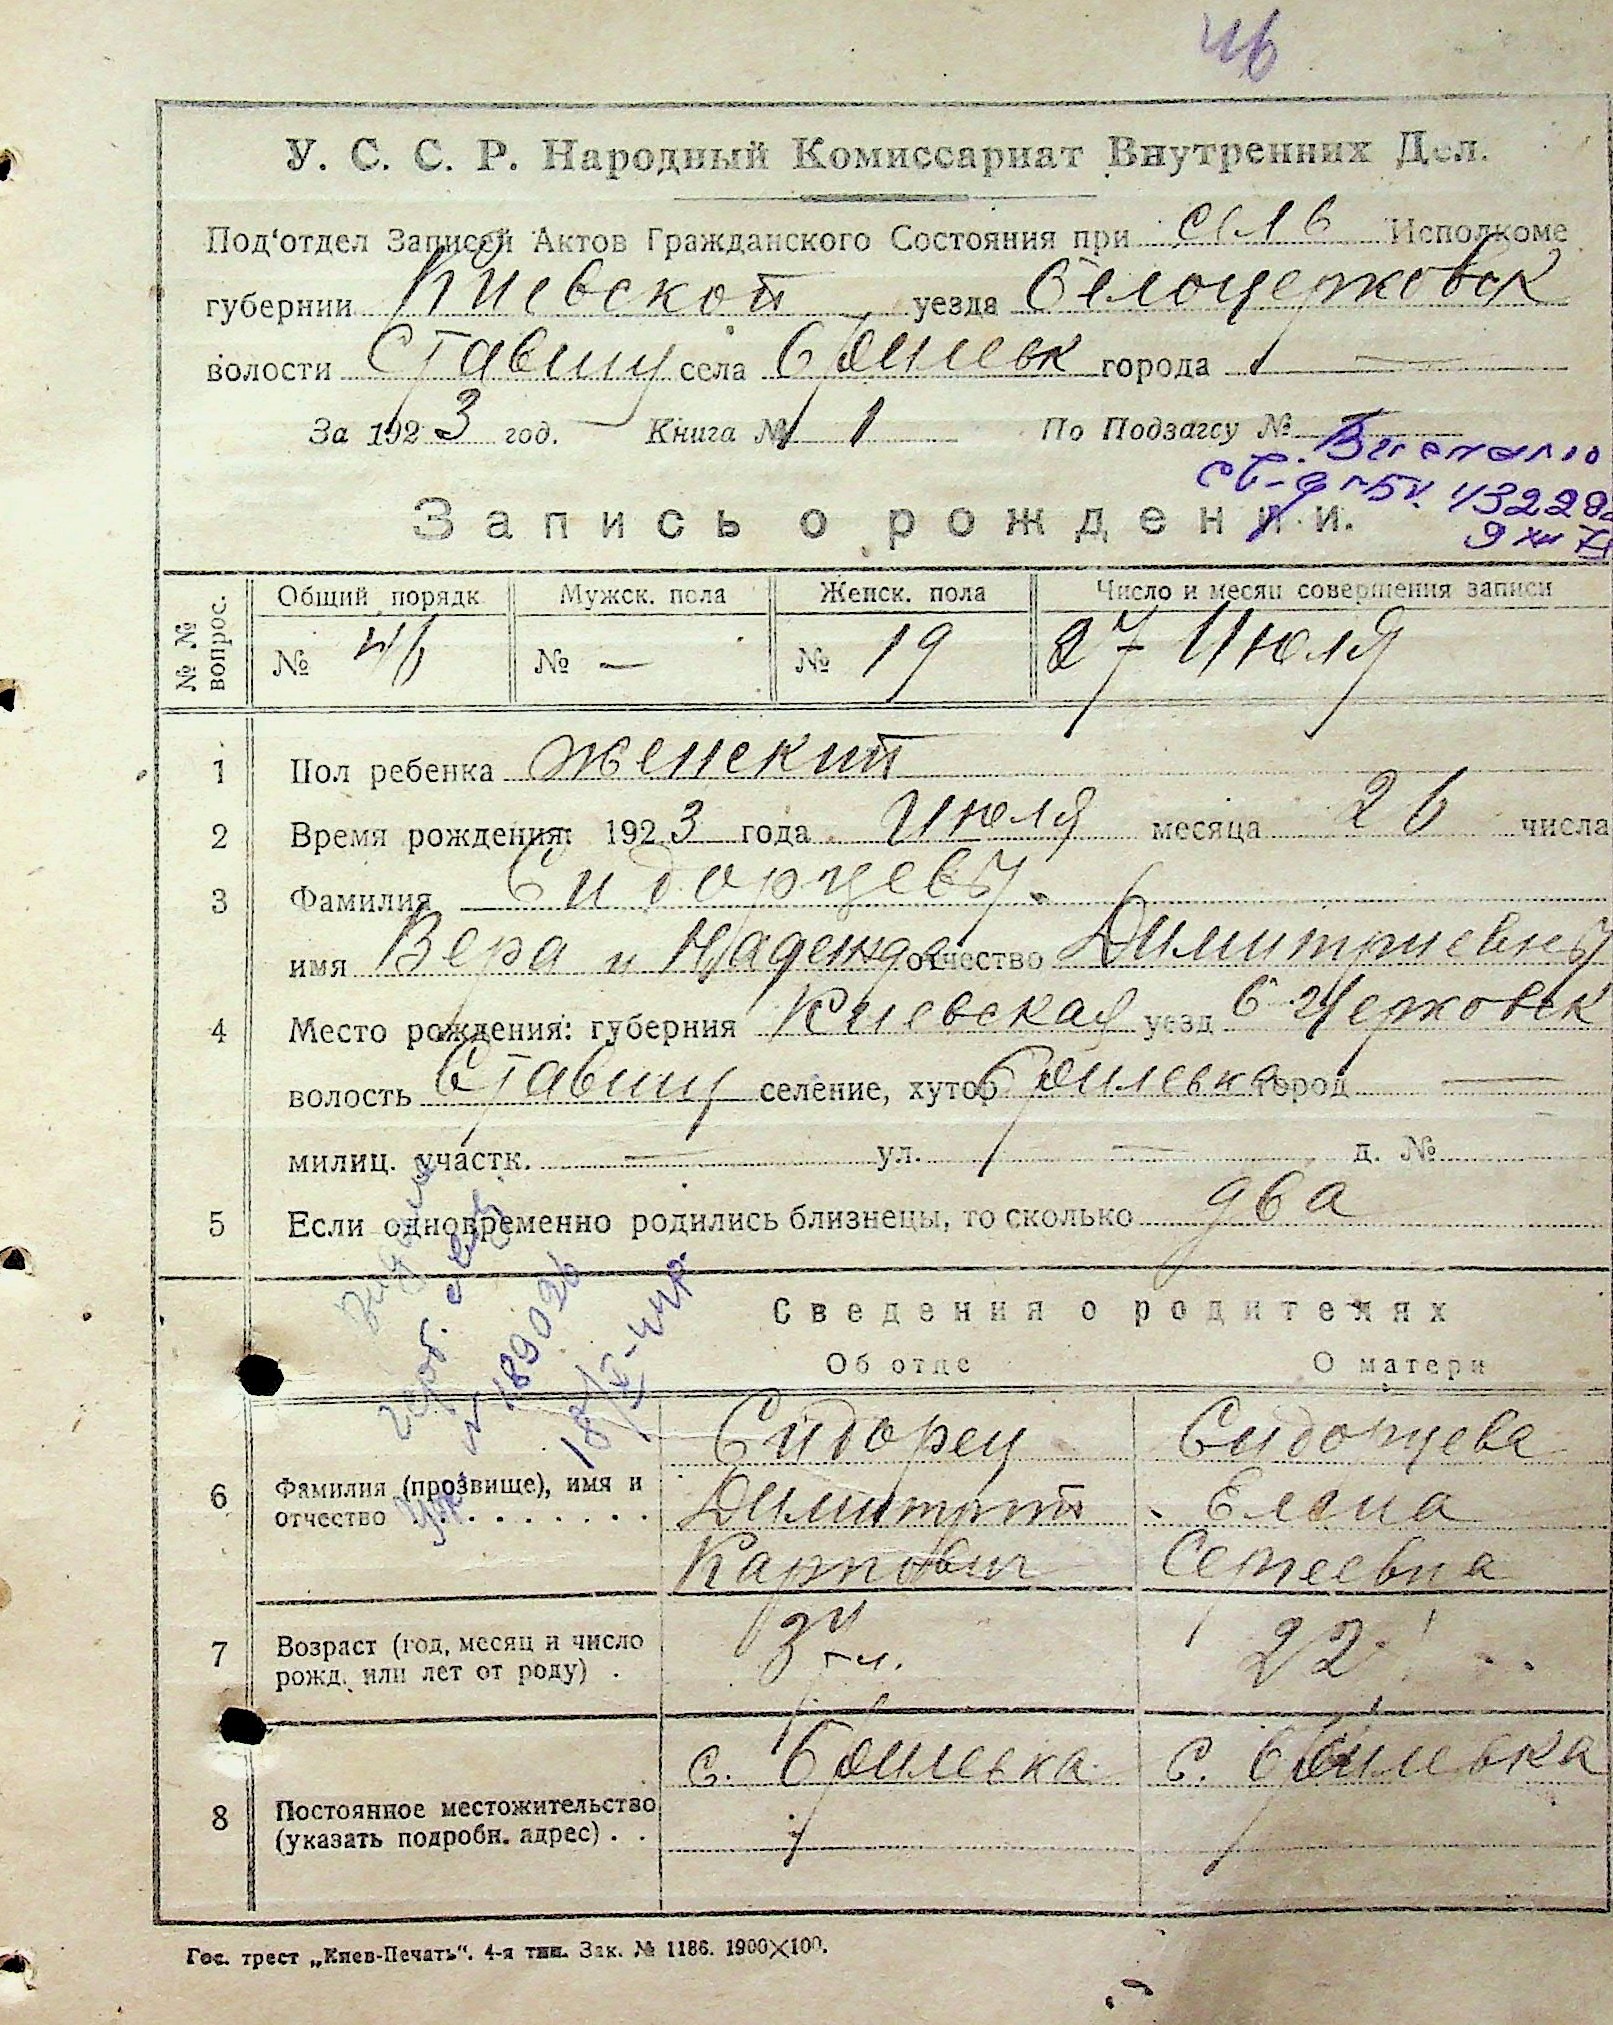 46
У. С. С. Р. Народный Комиссариат Внутренних Дел.
Под'отдел Записей Актов Гражданского Состояния при Исполкоме
губернии Киевской уезда Белоцерковск
волости Ставищ села города —
За 1923 год. Книга № 1 По Подзагсу №
Запись о рождении.
№ № вопрос.
Общий порядк Мужск. пола Женск. пола Число и месяц совершения записи
№ 46 № — № 19 27 Июля
1 Пол ребенка женский
2 Время рождения: 1923 года Июля месяца 26 числа
3 Фамилия Сидорцевы.
имя Вера и Надежда отчество Димитриевны
4 Место рождения: губерния Киевская уезд Б Церковск
волость Ставищ селение, хутор город —
милиц. участк. — ул. — д. №
5 Если одновременно родились близнецы, то сколько два
Сведения о родителях
Об отце О матери
6 Фамилия (прозвище), имя и отчество
Сидорец Сидорцева
Димитрий Елена
Карпович Сергеевна
7 Возраст (год, месяц и число рожд. или лет от роду) .
22
8 Постоянное местожительство (указать подробн. адрес) . .
с. с.
№ 189026
Гос. трест „Киев-Печать“. 4-я тип. Зак. № 1186. 1900×100.